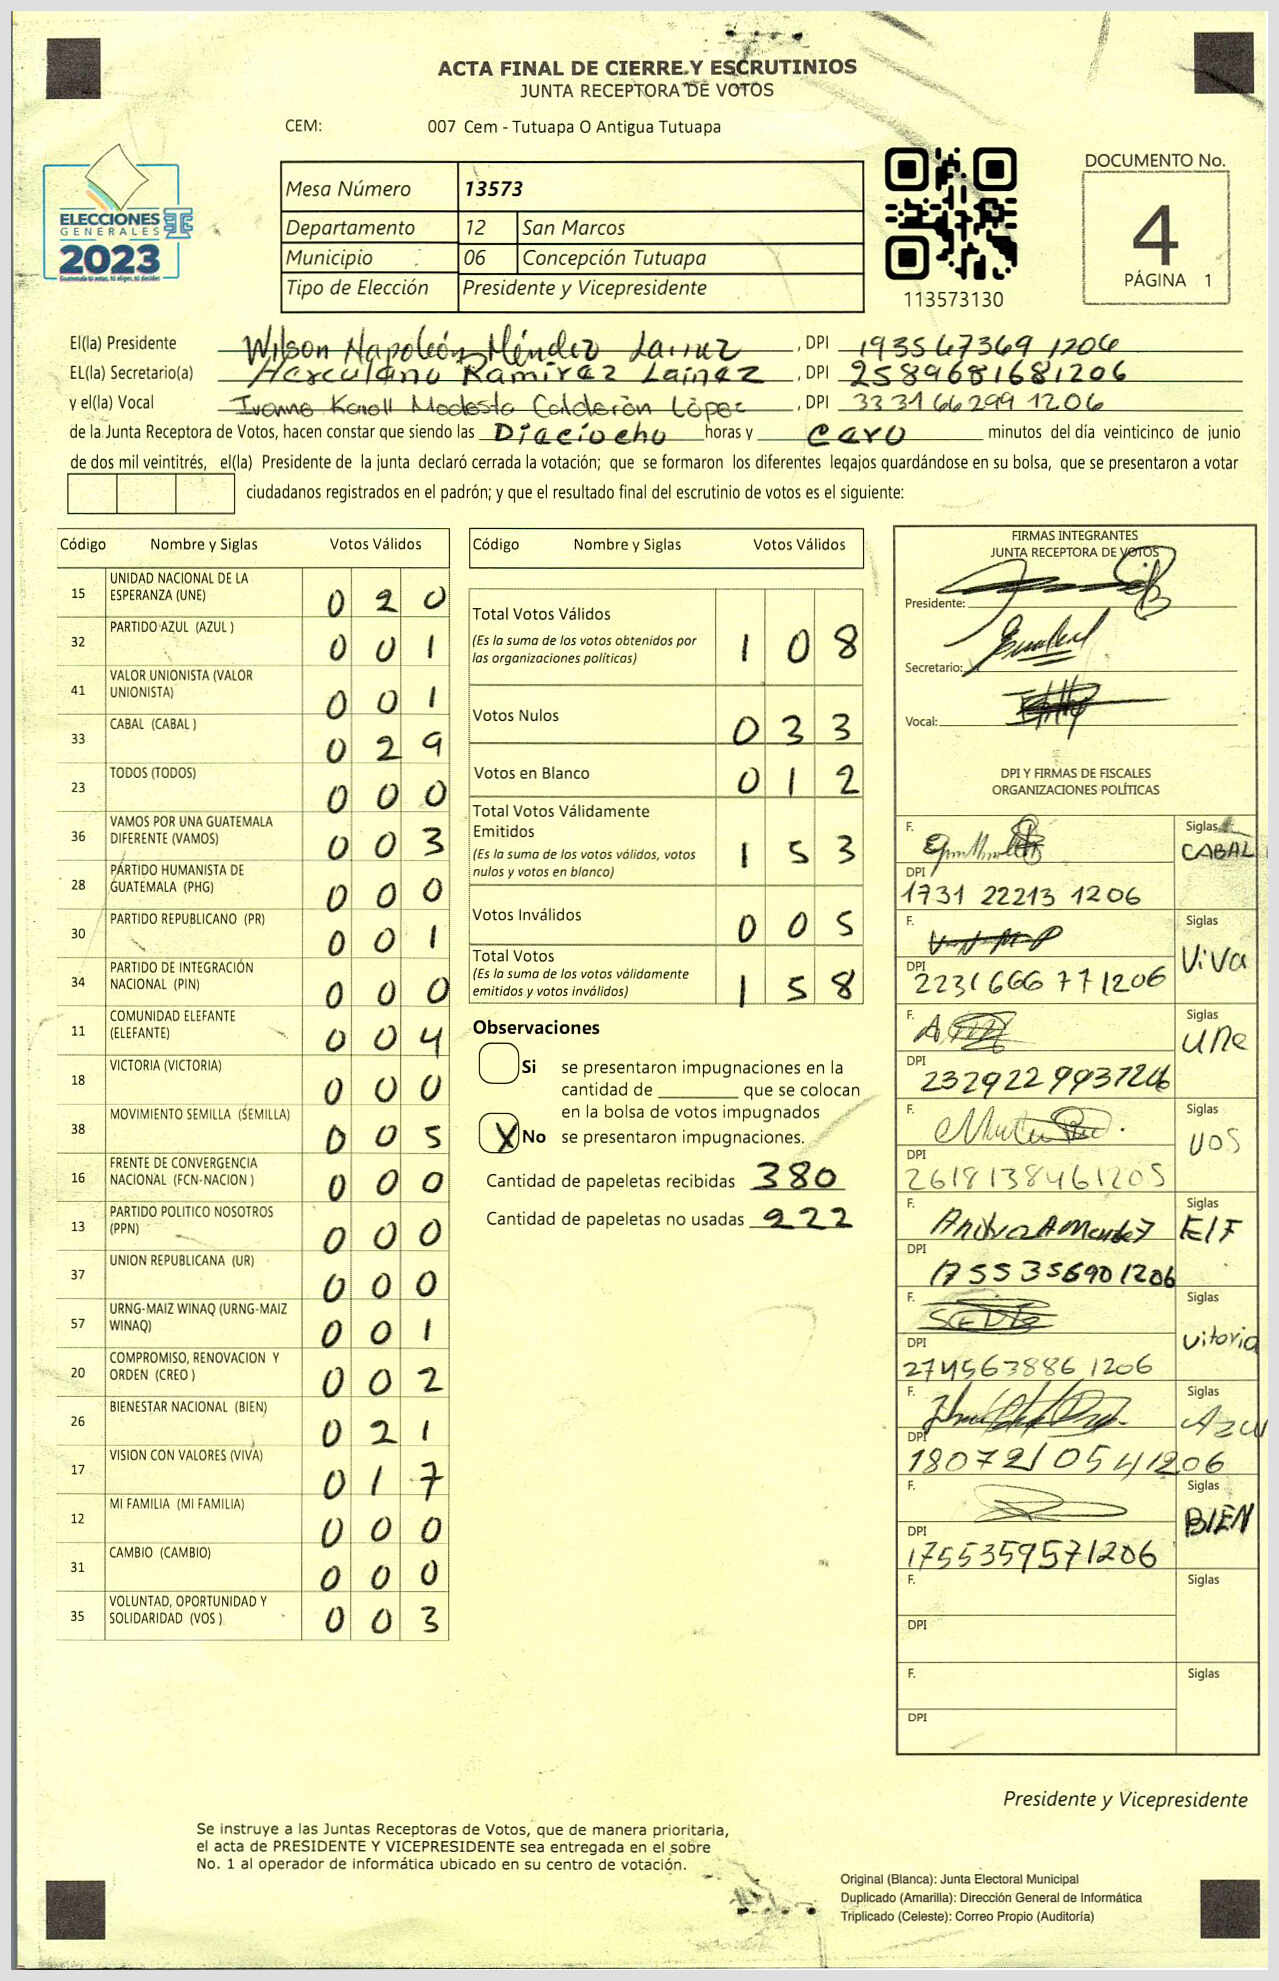 ACTA FINAL DE CIERRE Y ESCRUTINIOS
JUNTA RECEPTORA DE VOTOS
CEM: 007 Cem - Tutuapa O Antigua Tutuapa
ELECCIONES
GENERALES
2023
Mesa Número 13573
Departamento 12 San Marcos
Municipio 06 Concepción Tutuapa
Tipo de Elección Presidente y Vicepresidente
113573130
DOCUMENTO No.
4
PÁGINA 1
El(la) Presidente Wilson Napoleón Méndez Lainez , DPI 193567369 1206
EL(la) Secretario(a) Herculano Ramirez Lainez , DPI 2589681681206
y el(la) Vocal Ivonne Karoll Modesta Calderòn Lòpez , DPI 333166299 1206
de la Junta Receptora de Votos, hacen constar que siendo las Dieciocho horas y cero minutos del día veinticinco de junio
de dos mil veintitrés, el(la) Presidente de la junta declaró cerrada la votación; que se formaron los diferentes legajos quardándose en su bolsa, que se presentaron a votar
ciudadanos registrados en el padrón; y que el resultado final del escrutinio de votos es el siguiente:
Código Nombre y Siglas Votos Válidos
15 UNIDAD NACIONAL DE LA ESPERANZA (UNE) 0 2 0
32 PARTIDO AZUL (AZUL ) 0 0 1
41 VALOR UNIONISTA (VALOR UNIONISTA) 0 0 1
33 CABAL (CABAL ) 0 2 9
23 TODOS (TODOS) 0 0 0
36 VAMOS POR UNA GUATEMALA DIFERENTE (VAMOS) 0 0 3
28 PARTIDO HUMANISTA DE GUATEMALA (PHG) 0 0 0
30 PARTIDO REPUBLICANO (PR) 0 0 1
34 PARTIDO DE INTEGRACIÓN NACIONAL (PIN) 0 0 0
11 COMUNIDAD ELEFANTE (ELEFANTE) 0 0 4
18 VICTORIA (VICTORIA) 0 0 0
38 MOVIMIENTO SEMILLA (SEMILLA) 0 0 5
16 FRENTE DE CONVERGENCIA NACIONAL (FCN-NACION ) 0 0 0
13 PARTIDO POLITICO NOSOTROS (PPN) 0 0 0
37 UNION REPUBLICANA (UR) 0 0 0
57 URNG-MAIZ WINAQ (URNG-MAIZ WINAQ) 0 0 1
20 COMPROMISO, RENOVACION Y ORDEN (CREO ) 0 0 2
26 BIENESTAR NACIONAL (BIEN) 0 2 1
17 VISION CON VALORES (VIVA) 0 1 7
12 MI FAMILIA (MI FAMILIA) 0 0 0
31 CAMBIO (CAMBIO) 0 0 0
35 VOLUNTAD, OPORTUNIDAD Y SOLIDARIDAD (VOS ) 0 0 3
Código Nombre y Siglas Votos Válidos
Total Votos Válidos 1 0 8
(Es la suma de los votos obtenidos por
las organizaciones políticas)
Votos Nulos 0 3 3
Votos en Blanco 0 1 2
Total Votos Válidamente
Emitidos 1 5 3
(Es la suma de los votos válidos, votos
nulos y votos en blanco)
Votos Inválidos 0 0 5
Total Votos 1 5 8
(Es la suma de los votos válidamente
emitidos y votos inválidos)
Observaciones
Si se presentaron impugnaciones en la
cantidad de ________ que se colocan
en la bolsa de votos impugnados
X No se presentaron impugnaciones.
Cantidad de papeletas recibidas 380
Cantidad de papeletas no usadas 222
FIRMAS INTEGRANTES
JUNTA RECEPTORA DE VOTOS
Presidente:
Secretario:
Vocal:
DPI Y FIRMAS DE FISCALES
ORGANIZACIONES POLÍTICAS
F. Siglas CABAL
DPI 1731 22213 1206
F. Siglas ViVa
DPI 2231666 77 1206
F. Siglas UNe
DPI
F. Siglas VOS
DPI 2618138461205
F. Siglas ElF
DPI 1755356901206
F. Siglas Vitoria
DPI 274563886 1206
F. Siglas Azul
DPI 1807210541206
F. Siglas BIEN
DPI 1755359571206
F. Siglas
DPI
F. Siglas
DPI
Presidente y Vicepresidente
Se instruye a las Juntas Receptoras de Votos, que de manera prioritaria,
el acta de PRESIDENTE Y VICEPRESIDENTE sea entregada en el sobre
No. 1 al operador de informática ubicado en su centro de votación.
Original (Blanca): Junta Electoral Municipal
Duplicado (Amarilla): Dirección General de Informática
Triplicado (Celeste): Correo Propio (Auditoría)